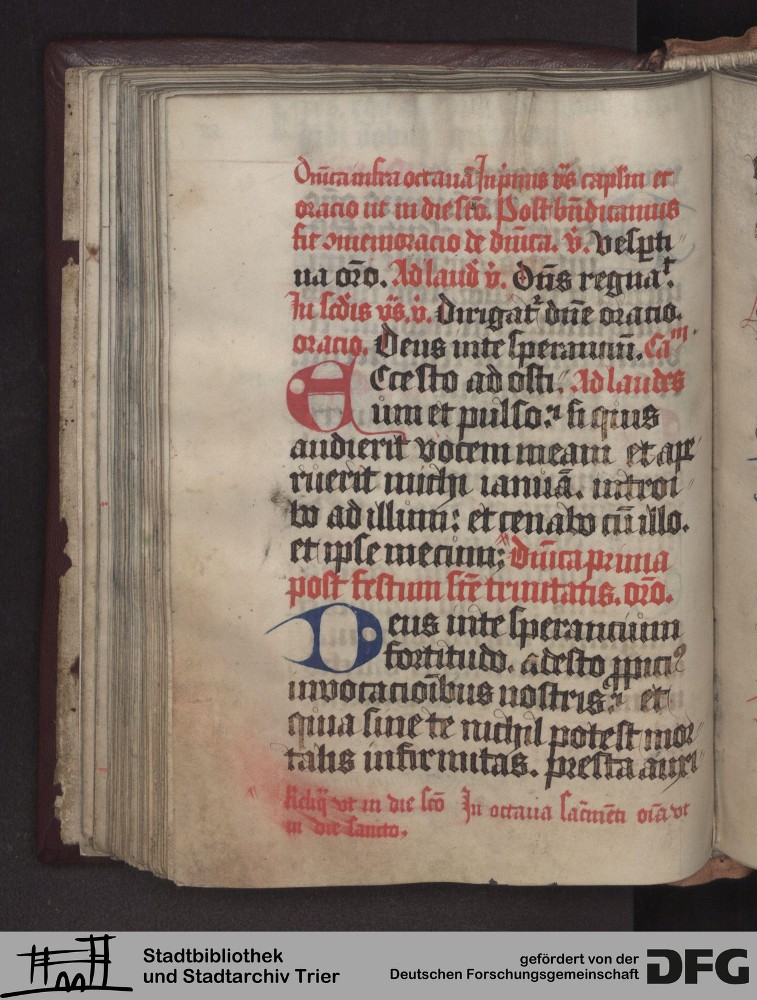 Dn̄ica infra octauā In p̄mis vꝫs caplm et
oracio ut in die sc̄o. Post bn̄dicamus
fit ɔmemoracio de dn̄ica. v̇. vesꝑti
na or̄o. Ad laud v̇. Dn̄s regnat.
In sc̄dis vꝫs. v̇. Dirigat᷑ dn̄e oracio.
oracio. Deus in te sperantiū. Cam
Ecce sto ad osti Ad laudes
um et pulso: si quis
audierit vocem meam et ape
ruerit michi ianuā. introi
bo ad illum: et cenabo cū illo.
et ipse mecum; Dn̄ica prima
post festum sc̄e trinitatis. or̄o.
Deus in te sperancium
fortitudo. adesto ꝓpici9
inuocacioībus nostris: et
quia sine te nichil potest mor
talis infirmitas. presta auxi
Reliq̄ vt in die sc̄o In octaua sac̄mēti oīa vt
in die sancto.
Stadtbibliothek
und Stadtarchiv Trier
gefördert von der
Deutschen Forschungsgemeinschaft
DFG